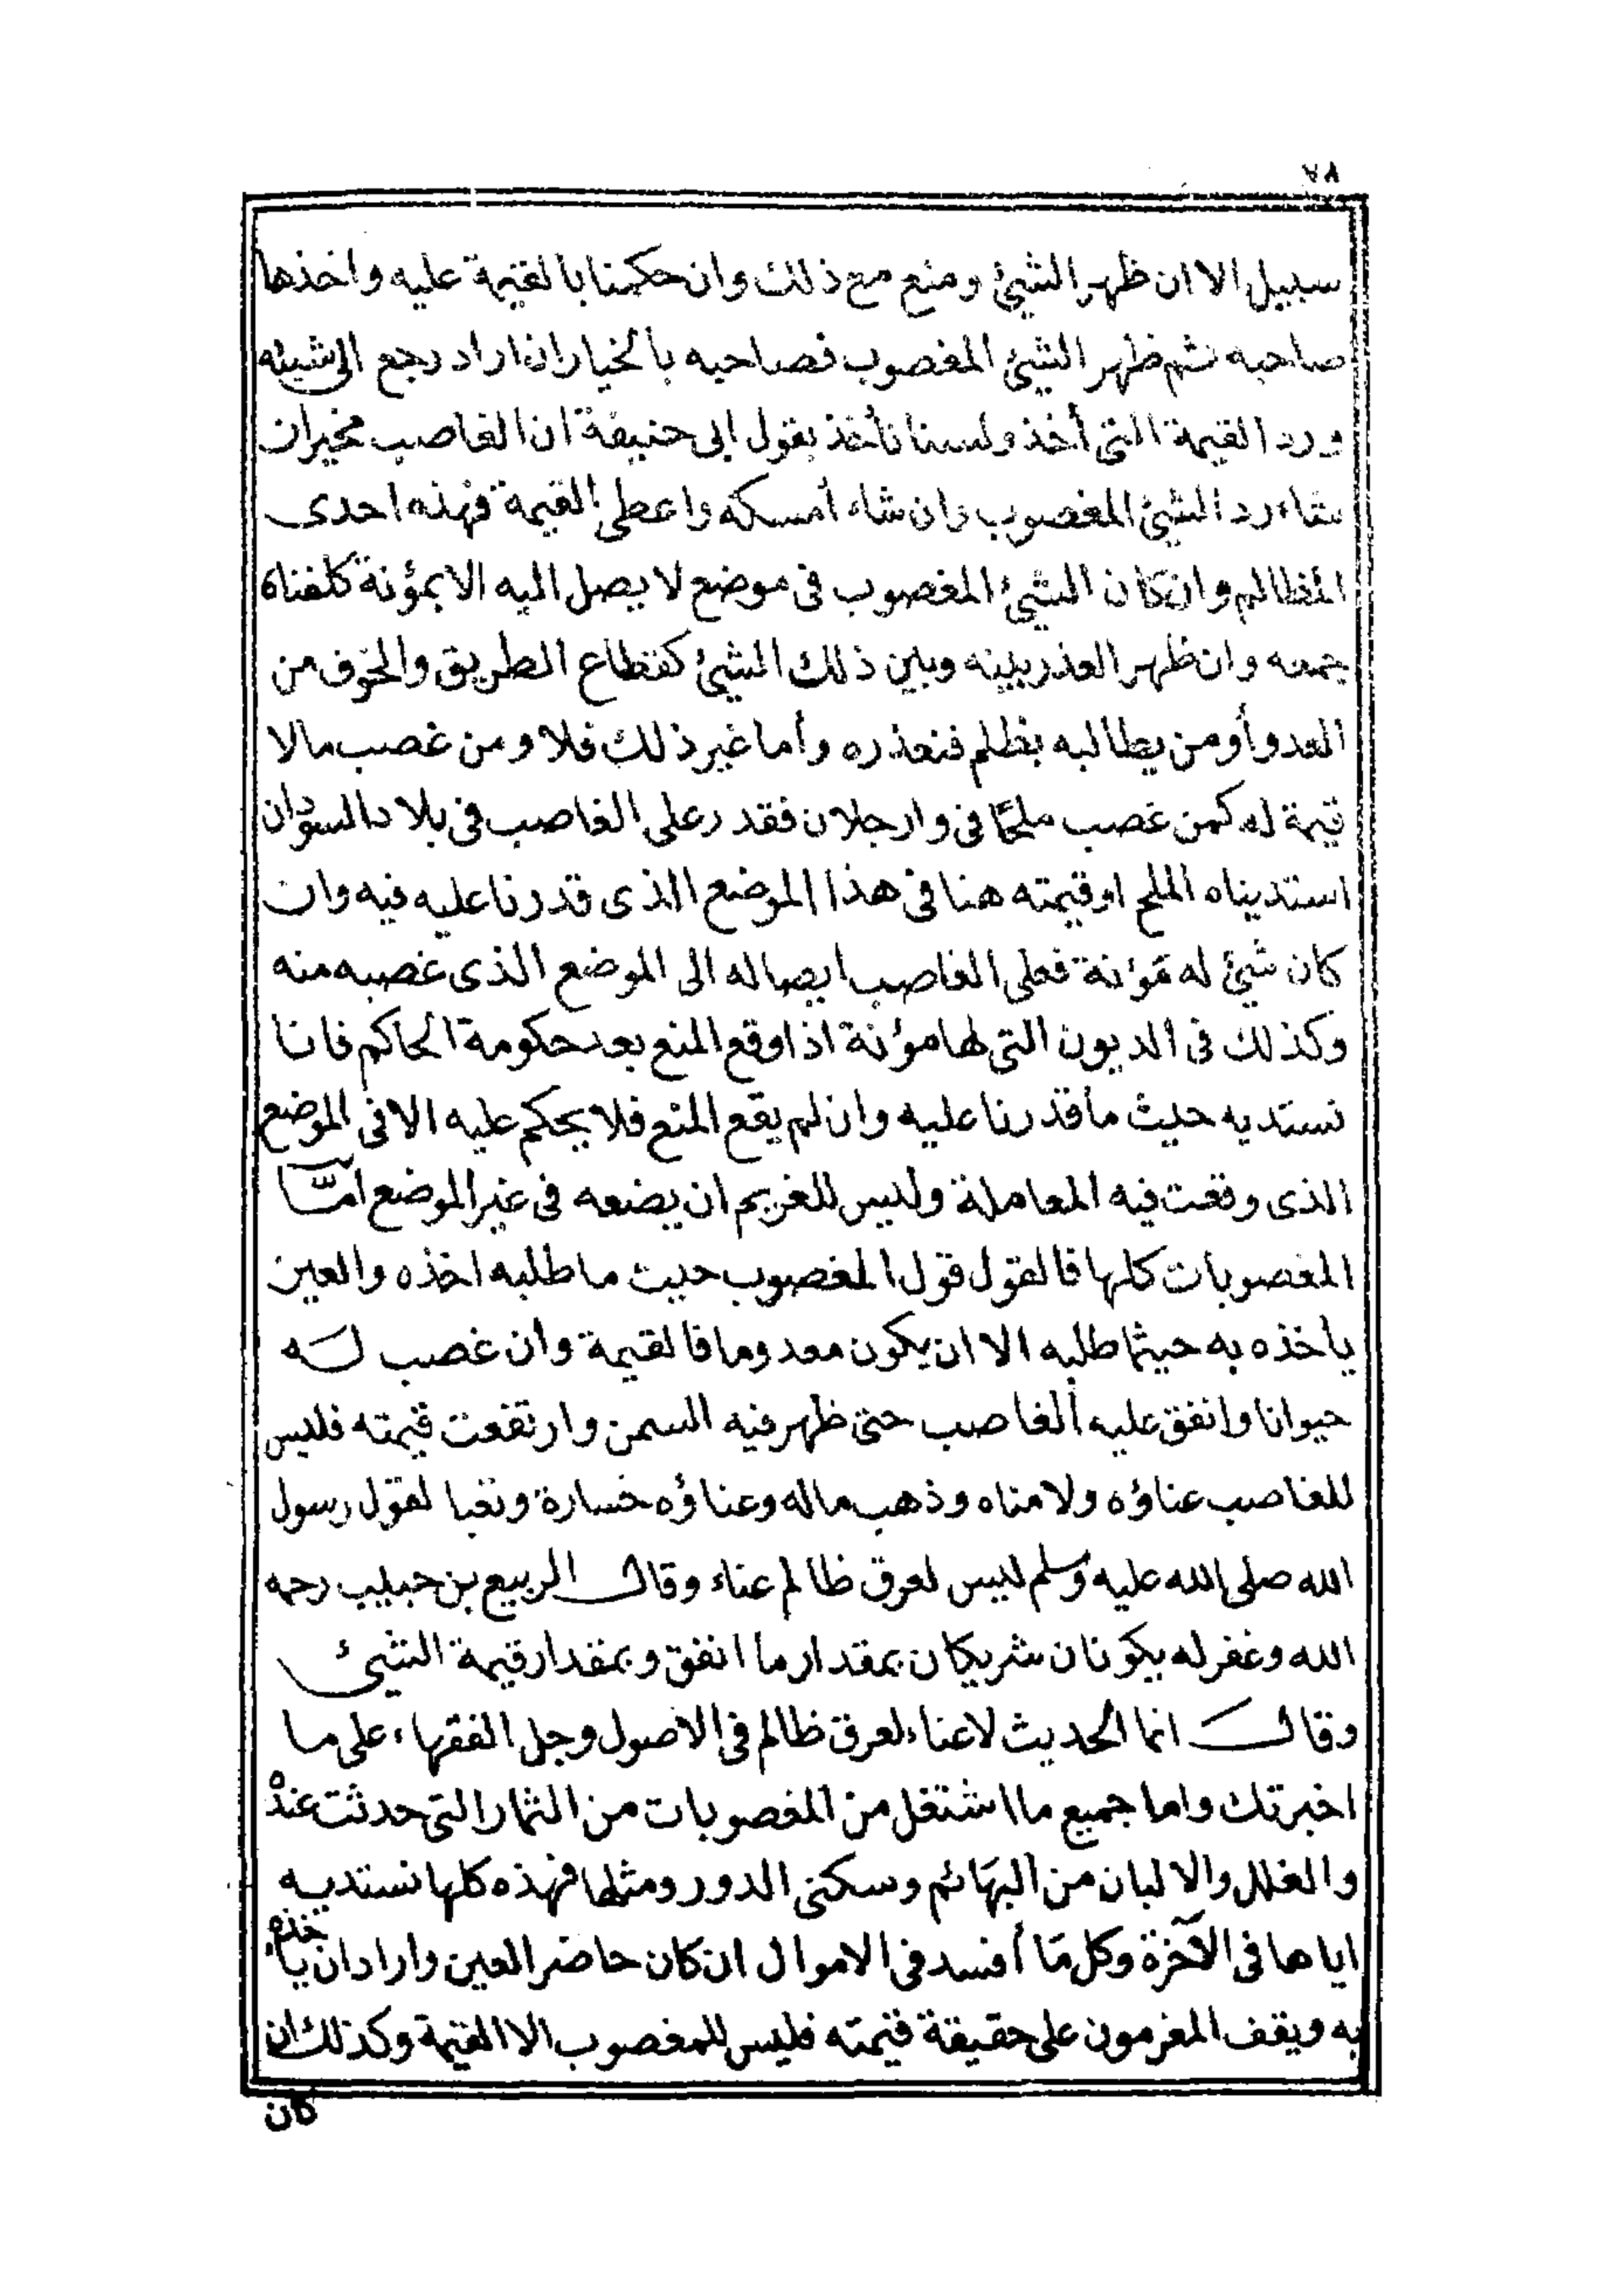 ٧٨
سبيل الا ان ظهر الشيئ ومنع مع ذلك وان حكمنا بالقيمة عليه واخذها
صاحبه ثم ظهر الشيئ المغصوب فصاحبه بالخيار ان اراد رجع الى شيئه
ورد القيمة التى أخذ ولسنا نأخذ بقول ابى حنيفة ان الغاصب مخير ان
شاء رد الشيئ المغصوب وان شاء أمسكه واعطى القيمة فهذه احدى
المظالم وان كان الشيئ المغصوب فى موضع لا يصل اليه الا بمؤنة كلفناه
جمعه وان ظهر العذر بينه وبين ذلك الشيئ كقطاع الطريق والخوف من
العدو أو من يطالبه بظلم فنعذره وأما غير ذلك فلا ومن غصب مالا
قيمة له كمن غصب ملحًا فى وارجلان فقدر على الغاصب فى بلاد السودان
استديناه الملح او قيمته هنا فى هذا الموضع الذى قدرنا عليه فيه وان
كان شيئ له مؤنة فعلى الغاصب ايصاله الى الموضع الذى غصبه منه
وكذلك فى الديون التى لها مؤنة اذا وقع المنع بعد حكومة الحاكم فانا
نستديه حيث ما قدرنا عليه وان لم يقع المنع فلا يحكم عليه الا فى الموضع
الذى وقعت فيه المعاملة وليس للغريم ان يضعه فى غير الموضع امّا
المغصوبات كلها فالقول قول المغصوب حيث ما طلبه اخذه والعين
يأخذه به حيثما طلبه الا ان يكون معدوما فالقيمة وان غصب له
حيوانا وانفق عليه الغاصب حتى ظهر فيه السمن وارتفعت قيمته فليس
للغاصب عناؤه ولا مناه وذهب ماله وعناؤه خسارة وتعبا لقول رسول
الله صلى الله عليه وسلم ليس لعرق ظالم عناء وقال الربيع بن حبيب رحمه
الله وغفر له يكونان شريكان بمقدار ما انفق وبمقدار قيمة الشيئ
وقال انما الحديث لاعناء لعرق ظالم فى الاصول وجل الفقهاء على ما
اخبرتك واما جميع ما اشتغل من المغصوبات من الثمار التى حدثت عنده
والغلل والالبان من البهائم وسكنى الدور ومثلها فهذه كلها نستديه
اياها فى الآخرة وكل مَا أفسد فى الاموال ان كان حاضر العين وارادان يأخذه
به ويقف المغرمون على حقيقة قيمته فليس للمغصوب الا القيمة وكذلك ان
كان